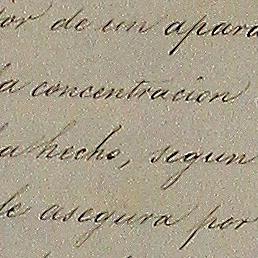 or de un apara
la concentracion
ha hecho, segun
le asegura por